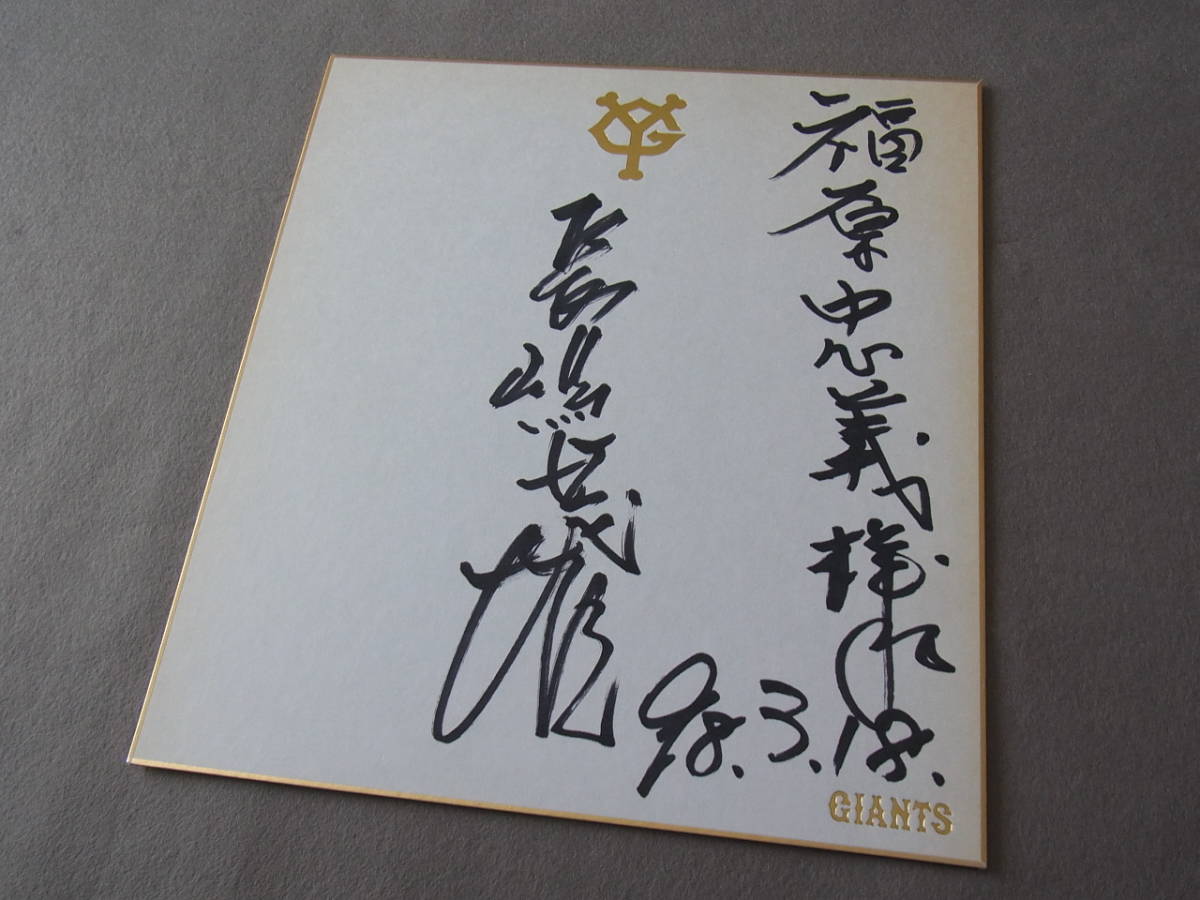 福原忠義様
長嶋茂雄
98.3.18.
YG
GIANTS